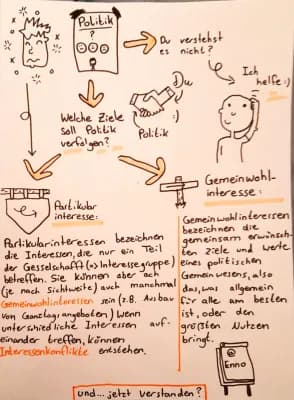 Politik
?
Du verstehst
es nicht?
Ich
helfe :)
Du
:)
Politik
Welche Ziele
soll Politik
verfolgen?
Partikular
interesse:
Partikularinteressen bezeichnen
die Interessen, die nur ein Teil
der Gesselschafft (=> Interessegruppe)
betreffen. Sie können aber auch
(je nach Sichtweite) auch manchmal
Gemeinwohlinteressen sein (z.B. Ausbau
von Ganztagsangeboten) Wenn
unterschiedliche Interessen auf-
einander treffen, können
Interessenkonflikte entstehen.
Gemeinwohl-
interesse:
Gemeinwohlinteressen
bezeichnen die
gemeinsam erwünsch-
ten Ziele und Werte
eines politischen
Gemeinwesens, also
das, was allgemein
für alle am besten
ist, oder den
größten Nutzen
bringt.
Enno
und... jetzt verstanden?